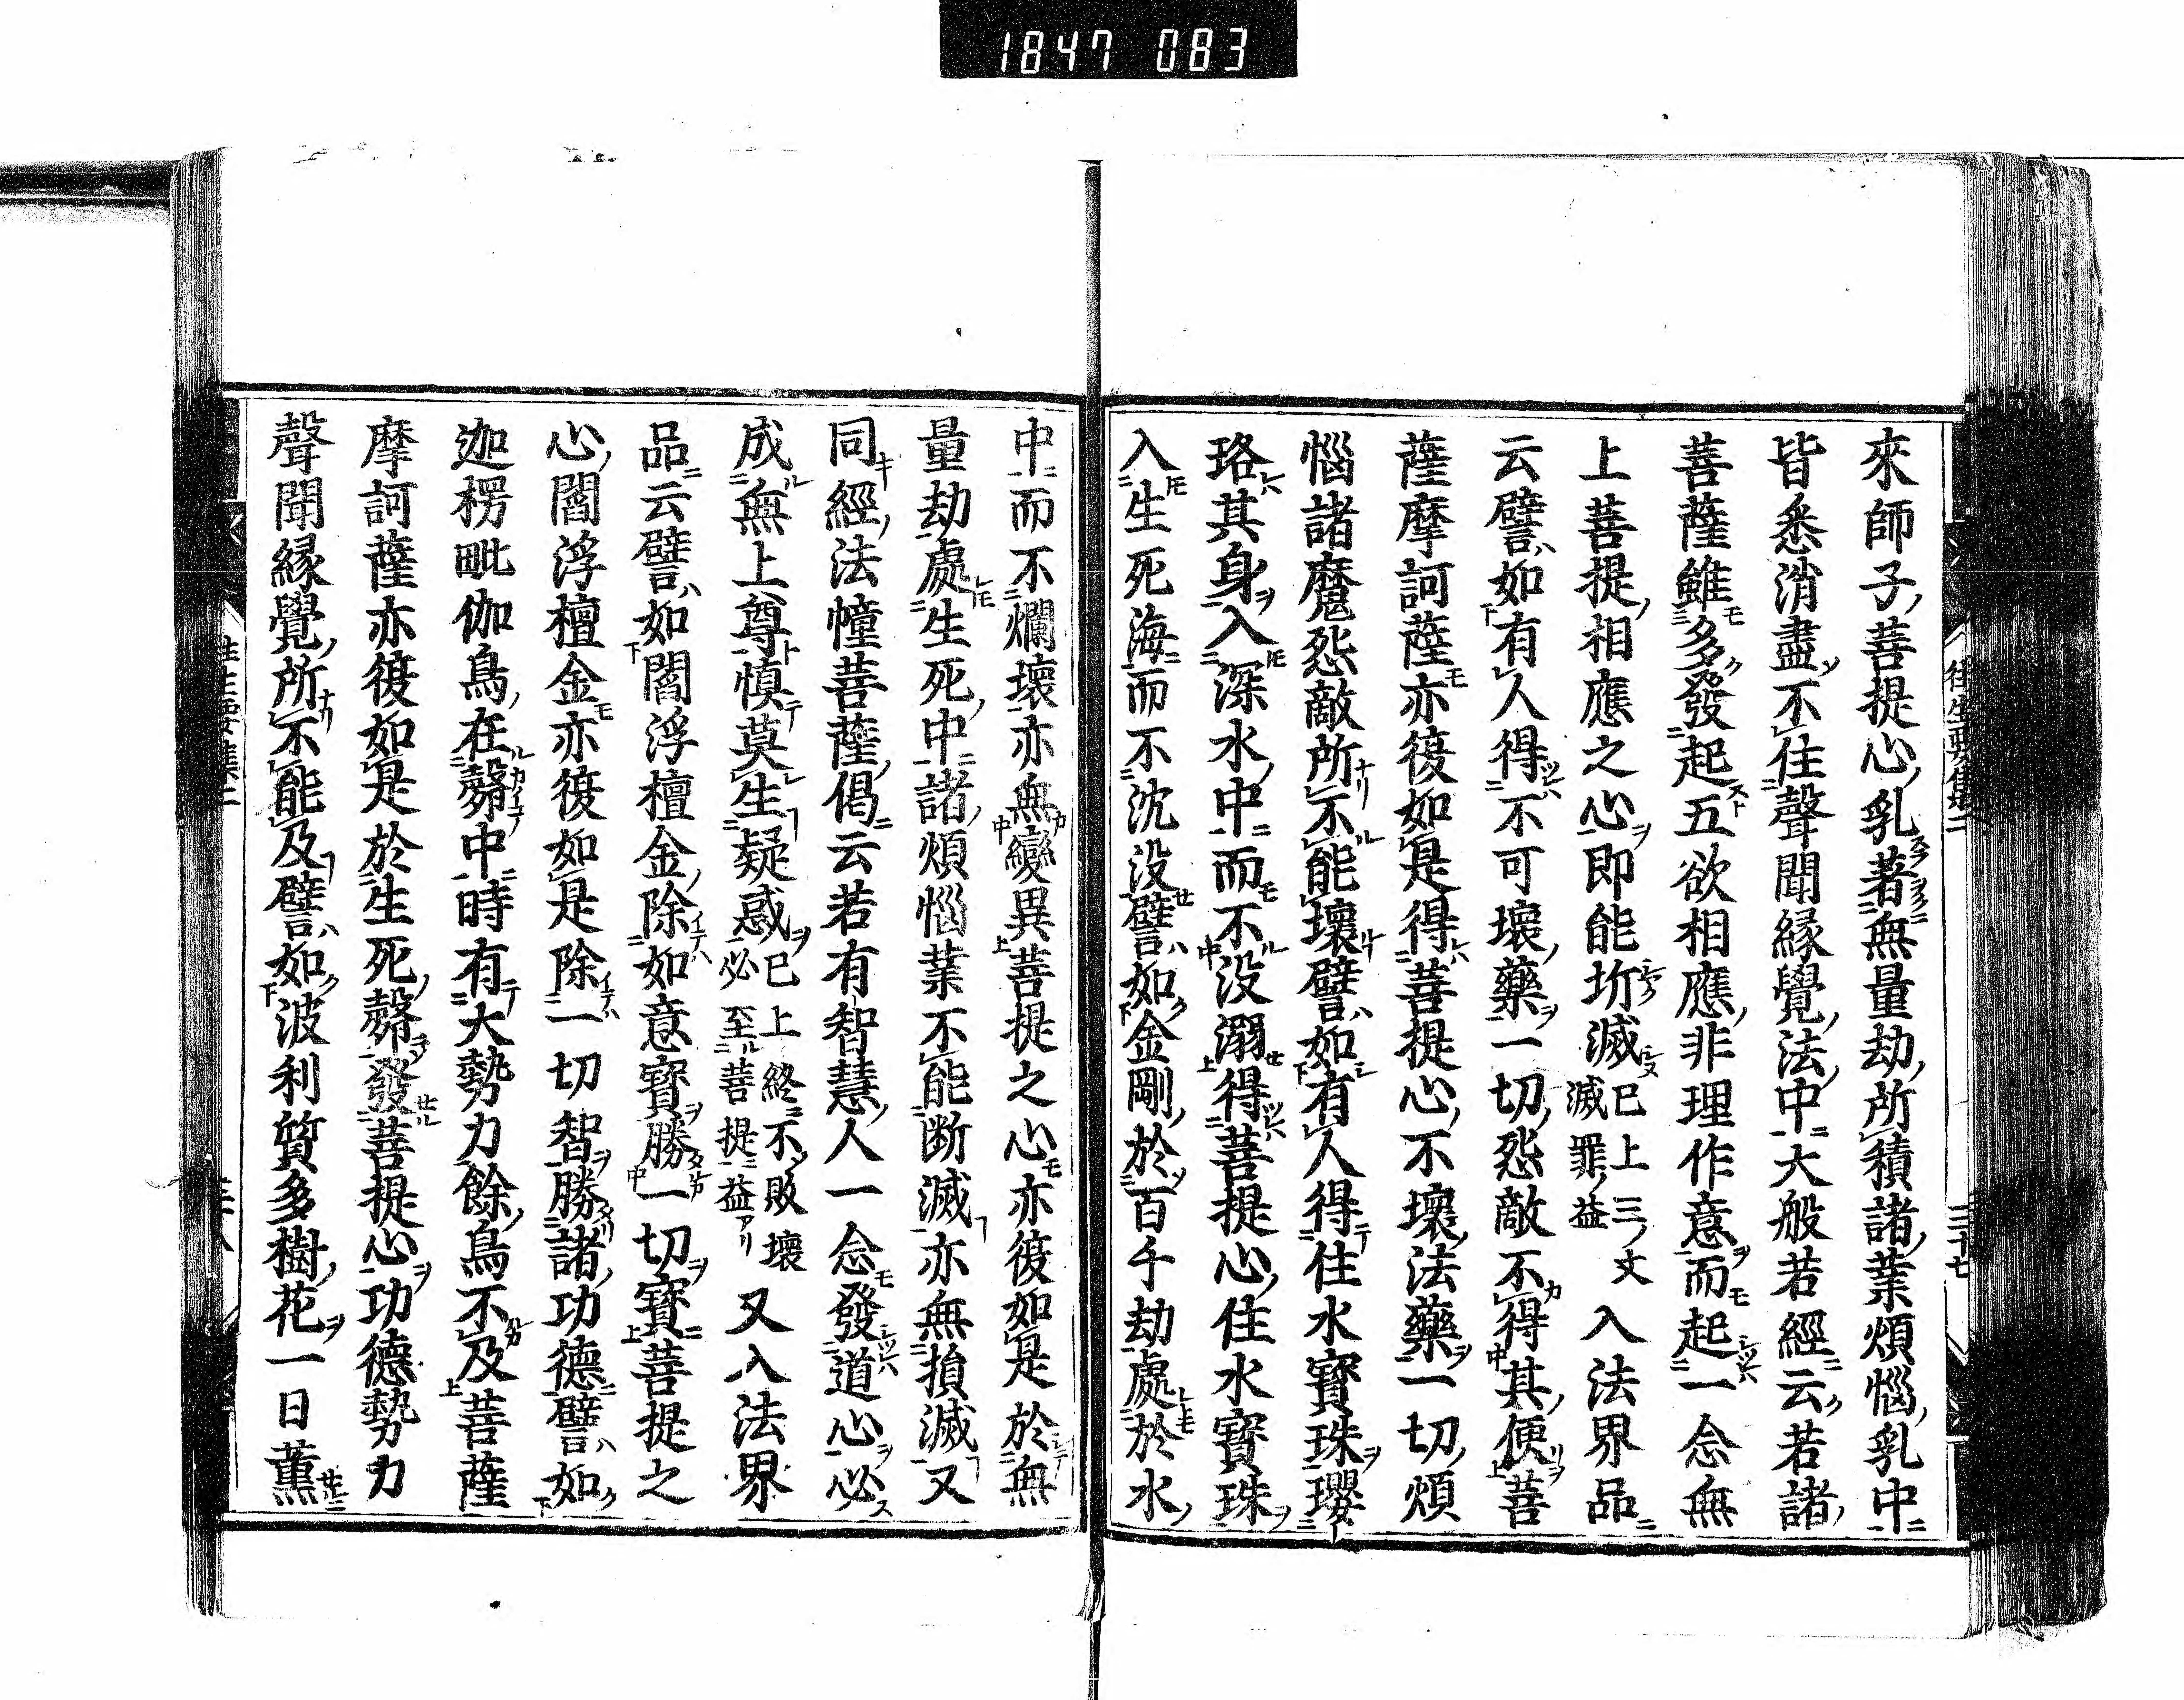 1847 083
往生要集二 三十七
來師子菩提心乳著無量劫所積諸業煩惱乳中
皆悉消盡不住聲聞縁覺法中大般若經云若諸
菩薩雖多發起五欲相應非理作意而起一念無
上菩提相應之心即能折滅已上三文滅罪益入法界品
云譬如有人得不可壞藥一切怨敵不得其便菩
薩摩訶薩亦復如是得菩提心不壞法藥一切煩
惱諸魔怨敵所不能壞譬如有人得住水寶珠瓔
珞其身入深水中而不没溺得菩提心住水寶珠
入生死海而不沈没譬如金剛於百千劫處於水
中而不爛壞亦無變異菩提之心亦復如是於無
量劫處生死中諸煩惱業不能断滅亦無損滅又
同經法幢菩薩偈云若有智慧人一念發道心必
成無上尊慎莫生疑惑已上終不敗壞必至菩提益又入法界
品云譬如閻浮檀金除如意寶勝一切寶菩提之
心閻浮檀金亦復如是除一切智勝諸功德譬如
迦楞毗伽鳥在㲉中時有大勢力餘鳥不及菩薩
摩訶薩亦復如是於生死㲉發菩提心功德勢力
聲聞縁覺所不能及譬如波利質多樹花一日薫
往生要集二 三十八